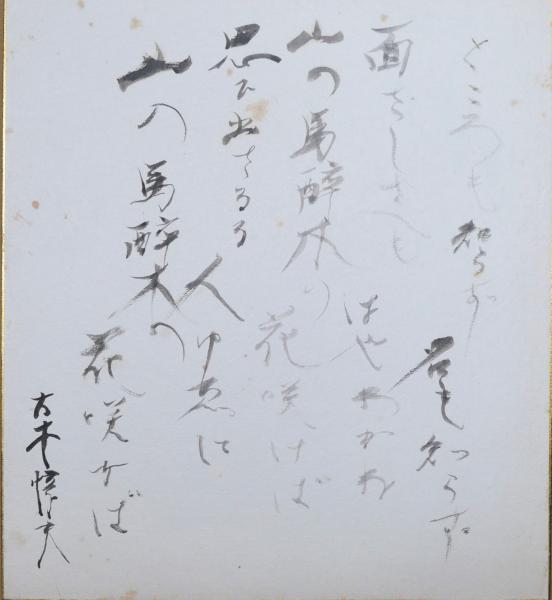 ところも知らず
名も知らず
面ざしさへも
はやわかね
山の馬酔木の
花咲けば
思ひ出さるる
人ゆゑに
山の馬酔木の
花咲けば
大木惇夫